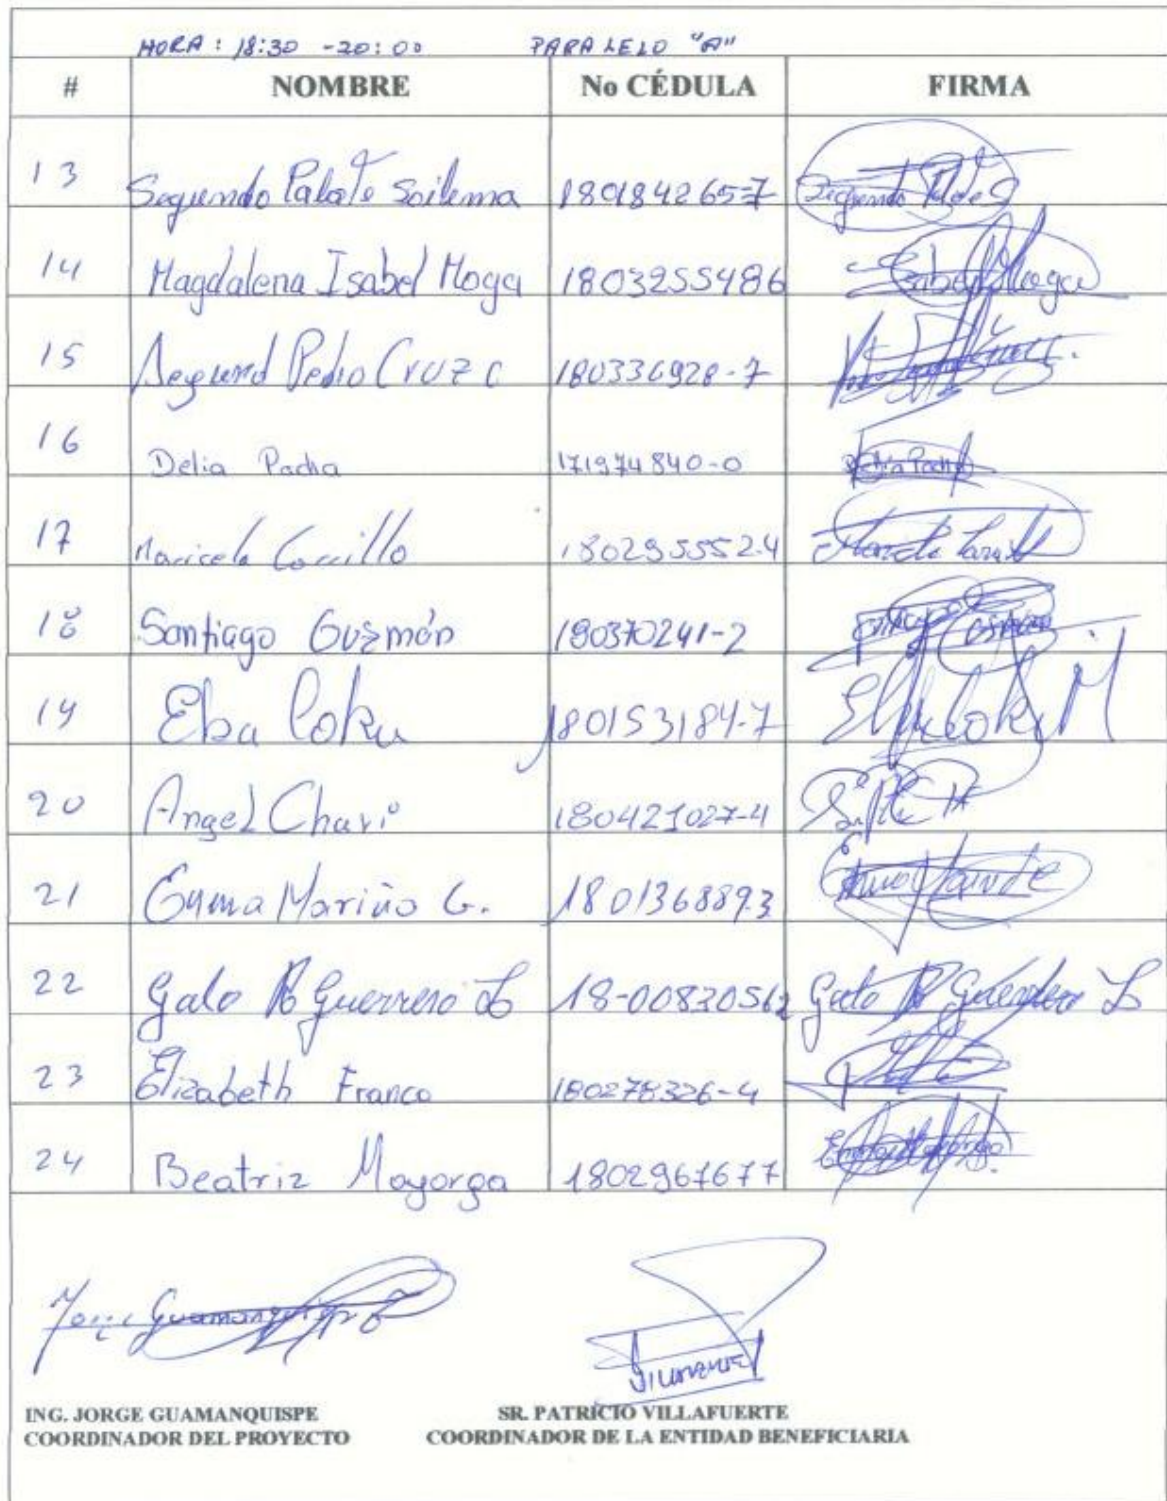 HORA: 18:30 -20:00 PARALELO "A"
# NOMBRE No CÉDULA FIRMA
13 Segundo Palate Soilema 180184265-7
14 Magdalena Isabel Moya 1803255486 Isabel Moya
15 Segund Pedro Cruz C 180336928-7
16 Delia Pacha 171974840-0 Delia Pacha
17 Maricela Carrillo 180295552-4
18 Santiago Guzmán 180370241-2
19 Elsa Coku 180153184-7
20 Angel Chavi 180421027-4
21 Emma Mariño G. 180136889.3
22 Galo R Guerrero L 18-0083056 Galo R Guerrero L
23 Elizabeth Franco 180278326-4
24 Beatriz Mayorga 1802967677
Jorge Guamanquispe
ING. JORGE GUAMANQUISPE SR. PATRICIO VILLAFUERTE
COORDINADOR DEL PROYECTO COORDINADOR DE LA ENTIDAD BENEFICIARIA